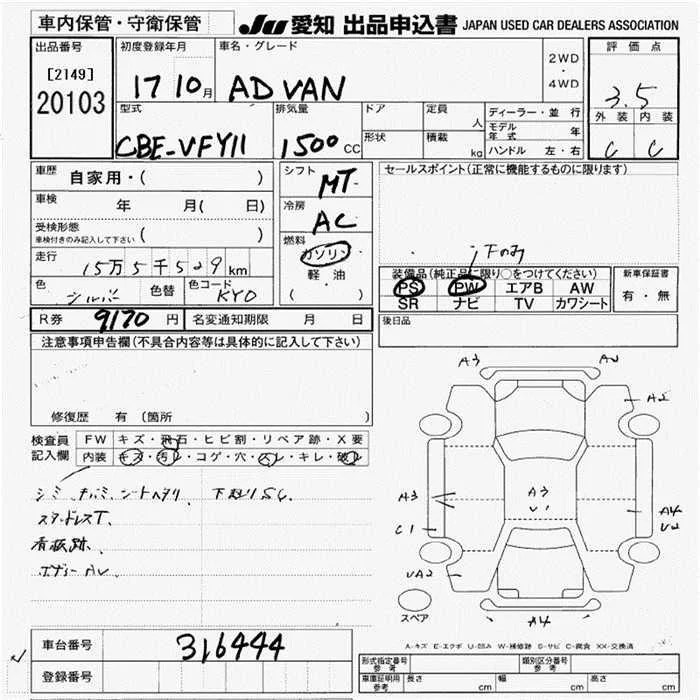 車内保管・守衛保管 JU 愛知 出品申込書 JAPAN USED CAR DEALERS ASSOCIATION
出品番号 [2149] 20103
初度登録年月 17 10月
車名・グレード AD VAN
2WD・4WD
評価点 3.5
外装 内装
C C
型式 CBE-VFY11
排気量 1500 CC
ドア
定員 人
形状
積載 kg
ディーラー・並行
モデル年式 年
ハンドル 左・右
車歴 自家用・( )
車検 年 月( 日)
受検形態 車検付きのみ記入して下さい ( )
走行 15万5千529km
色 シルバー 色替 色コード KY0
シフト MT
冷房 AC
燃料 ガソリン 軽油 ( )
セールスポイント(正常に機能するものに限ります)
下のみ
装備品(純正品に限り○をつけてください)
PS PW エアB AW
SR ナビ TV カワシート
新車保証書 有・無
R券 9170 円 名変通知期限 月 日
後日品
注意事項申告欄(不具合内容等は具体的に記入して下さい)
修復歴 有 〔箇所 〕
検査員記入欄
FW キズ・飛石・ヒビ割・リペア跡・X要
内装 キズ・汚レ・コゲ・穴・スレ・キレ・破レ
スタッドレスT.
看板跡.
A3
A2
A3
C1
UA2
A3
U1
A4
U2
A4
スペア
A-キズ E-エクボ U-凹み W-補修跡 S-サビ C-腐食 XX-交換済
車台番号 316444
登録番号
形式指定番号 参考
類別区分番号 参考
車庫証明用 参考 長さ cm 幅 cm 高さ cm